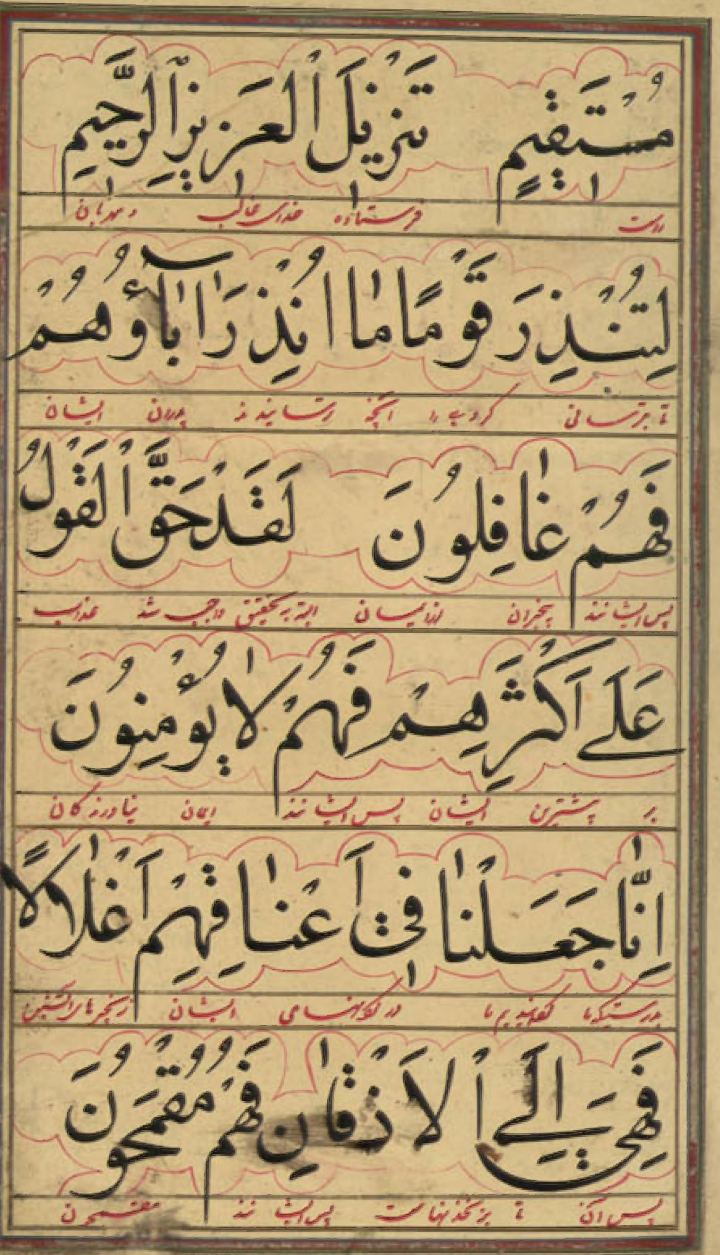 مُسْتَقٖيمٍ تَنْزٖيلَ الْعَزٖيزِ الرَّحٖيمِ
راست فرستاده خدای غالب و مهربانی
لِتُنْذِرَ قَوْمًا مٰا اُنْذِرَ اٰبٰٓاؤُهُمْ
تا بترسانی گروهی را آنچه ترسانیدند پدران ایشان
فَهُمْ غٰافِلُونَ لَقَدْ حَقَّ الْقَوْلُ
پس ایشانند بیخبران البته بتحقیق واجب شد عذاب
عَلٰٓى اَكْثَرِهِمْ فَهُمْ لٰا يُؤْمِنُونَ
بر بیشترین ایشان پس ایشانند ایمان نیاورندگان
اِنّٰا جَعَلْنٰا فٖٓي اَعْنٰاقِهِمْ اَغْلٰالًا
بدرستیکه ما گردانیدیم ما در گردنهای ایشان زنجیرهای آتشین
فَهِيَ اِلَى الْاَذْقٰانِ فَهُمْ مُقْمَحُونَ
پس آن تا بزنخدانهاست پس ایشانند مقمحون